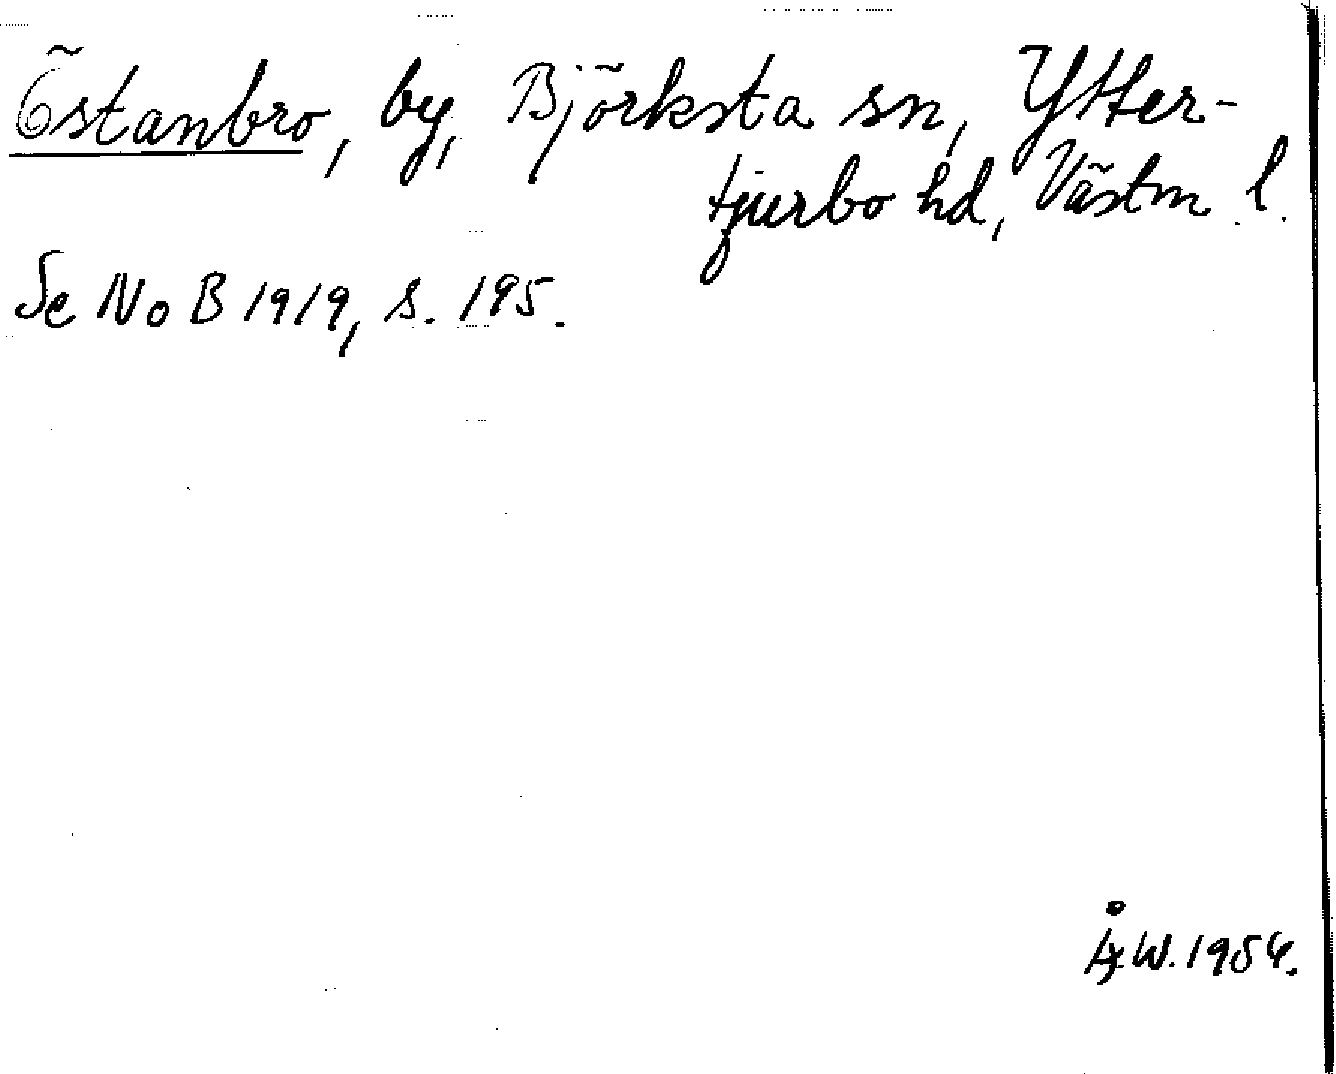 Östanbro, by, Björksta sn, Ytter-
tjurbo hd, Västm. l.
Se NoB 1919, s. 195.
Å.W. 1954.